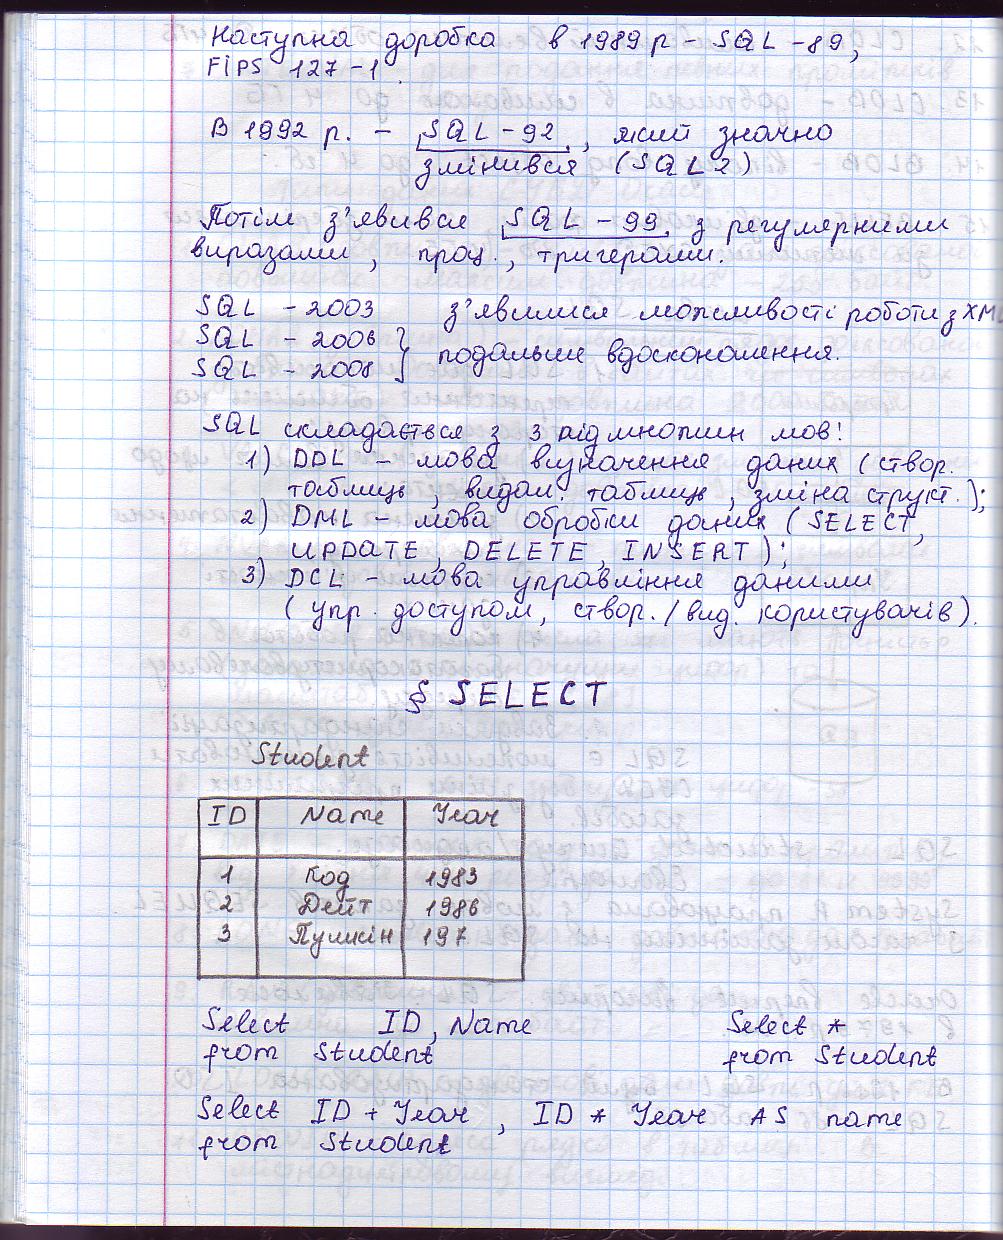 Наступна доробка в 1989 р - SQL - 89,
FiPS 127-1.
В 1992 р. - SQL - 92, який значно
змінився (SQL 2)
Потім з'явився SQL - 99 з регулярними
виразами, проц., тригерами.
SQL - 2003 з'явилися можливості роботи з XML
SQL - 2006
SQL - 2008 } подальше вдосконалення.
SQL складається з 3 підмножин мов:
1) DDL - мова визначення даних (створ.
таблиць, видал. таблиць, зміна структ.);
2) DML - мова обробки даних (SELECT,
UPDATE, DELETE, INSERT);
3) DCL - мова управління даними
(упр. доступом, створ./вид. користувачів).
§ SELECT
Student
ID Name Year
1 Код 1983
2 Дейт 1986
3 Пушкін 197
Select ID, Name Select *
from Student from Student
Select ID + Year, ID * Year AS name
from Student